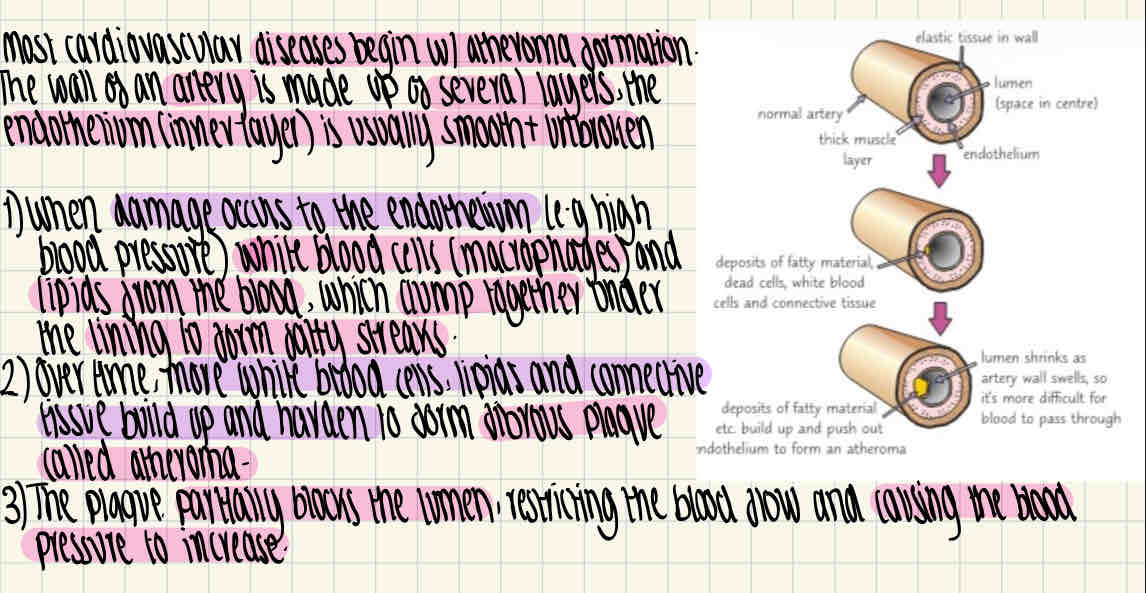 most cardiovascular diseases begin w/ atheroma formation.
The wall of an artery is made up of several layers, the
endothelium (inner layer) is usually smooth + unbroken
1) When damage occurs to the endothelium (e.g high
blood pressure) white blood cells (macrophages) and
lipids from the blood, which clump together under
the lining to form fatty streaks.
2) Over time, more white blood cells, lipids and connective
tissue build up and harden to form fibrous plaque
called atheroma-
3) The plaque partially blocks the lumen, restricting the blood flow and causing the blood
pressure to increase.
elastic tissue in wall
lumen
(space in centre)
normal artery
thick muscle
layer
endothelium
deposits of fatty material,
dead cells, white blood
cells and connective tissue
lumen shrinks as
artery wall swells, so
it's more difficult for
blood to pass through
deposits of fatty material
etc. build up and push out
endothelium to form an atheroma